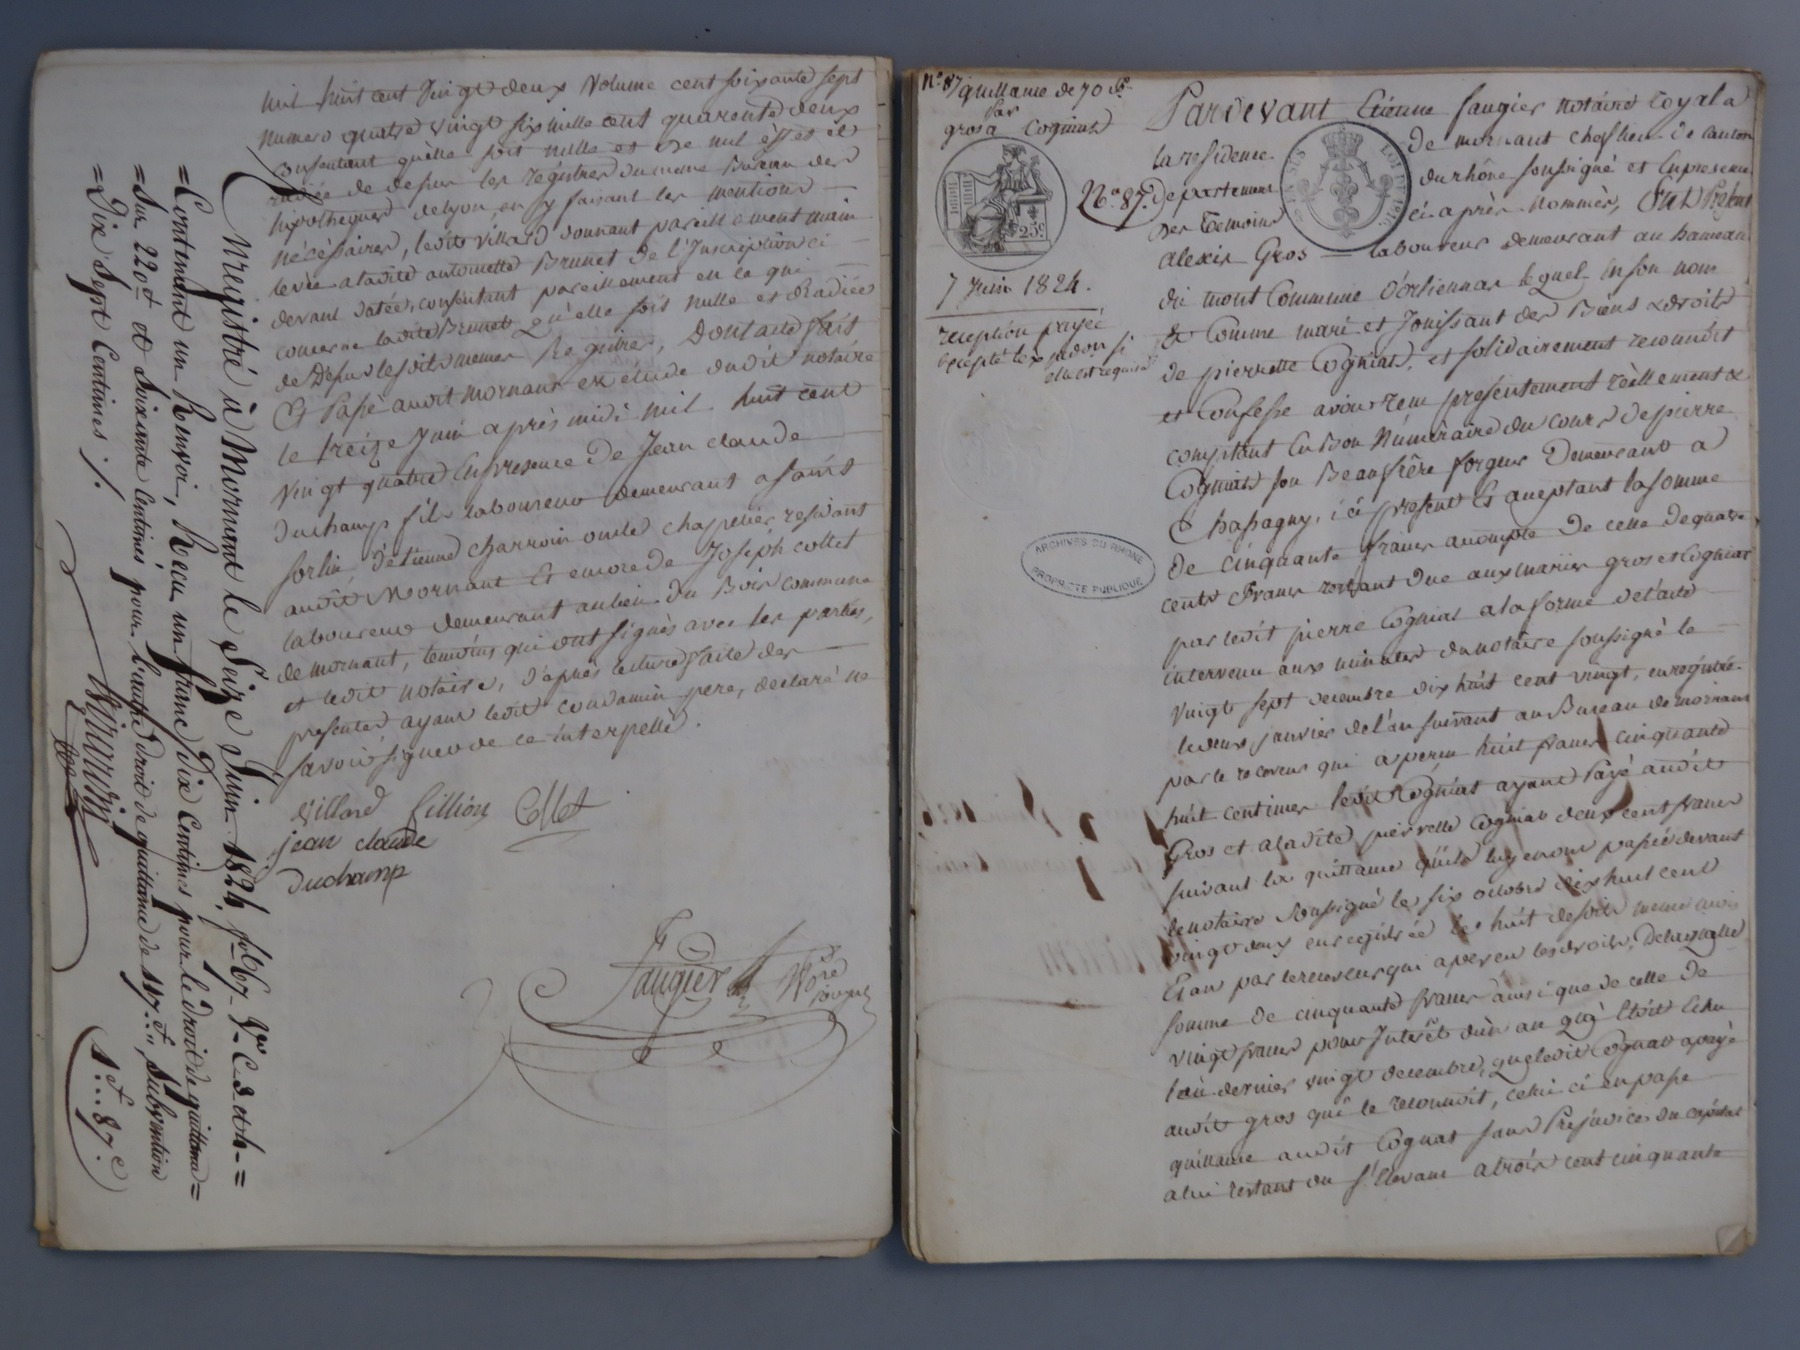 mil huit cent vingt deux volume cent soixante sept
numero quatre vingt six mille cent quarente deux
consentant qu'elle soit nulle et de nul effet et
radiée de dessus les régistres du meme Bureau des
hipotheques de Lyon, en y faisant les mentions
nécéssaires, ledit Villard donnant pareillement main
levée a ladite antoinette Brunet de l'Inscription ci
devant datée, consentant pareillement en ce qui
concerne ladite Brunet qu'elle soit nulle et Radiée
de dessus lesdits memes Registres, Dont acte fait
Et Passé audit Mornant en étude dudit notaire
le treize Juin après midi mil huit cent
vingt quatre En presence de Jean claude
Duchamp fils laboureur demeurant a saint
sorlin, d'etienne charvoin oncle chapelier residant
audit Mornant Et encore de Joseph collet
laboureur demeurant au lieu du Bois commune
de mornant, temoins qui ont signés avec les parties,
et ledit notaire, d'après lecture faite des
presentes, ayant ledit condamin pere, declaré ne
savoir signer de ce interpellé.
Villard fillion Collet
jean claude
Duchamp
Faugier Nre royal
Enregistré à Mornant le Seize Juin 1824, fol 67
=Contenant un Renvoi, Recu un franc Dix Centimes pour le Droit de quittance=
=Sur 220 f et Soixante Centimes pour l'autre Droit de quittance de 117 f, Subvention
=Dix Sept Centimes ./.
1 f .. 87 c
No 87 quittance de 70 f
par
gros a Cogniat
25 c
7 Juin 1824.
reception payée
excepté l'expedon si
elle est requise
No 87.
ARCHIVES DU RHONE
PROPRIETE PUBLIQUE
Pardevant Etienne faugier notaire royal a
la residence de mornant chef lieu de canton
Departement du rhône soussigné et En presence
des Temoins ci après nommés, Fut Présent
alexis Gros laboureur demeurant au hameau
du mont Commune d'orliennas lequel en son nom
& Comme mari et Jouissant des Biens & droits
de pierrette Cogniat, et solidairement reconnoit
et Confesse avoir reçu présentement réellement &
comptant En Bon Numéraire du cours de pierre
Cogniat son Beaufrère forgeur Demeurant a
Chassagny, ici present Et aceptant la somme
de cinquante francs acompte De celle de quatre
cents Francs restant due aux mariés gros et Cogniat
par ledit pierre Cogniat a la forme de l'acte
intervenu aux minutes du notaire soussigné le
vingt sept decembre dix huit cent vingt, enregistré
le deux janvier de l'an suivant au Bureau de mornant
par le receveur qui a perçu huit francs cinquante
huit centimes ledit Cogniat ayant Payé audit
Gros et a ladite pierrette Cogniat deux cent francs
suivant la quittance qu'ils luy en ont passée devant
le notaire soussigné le six octobre dix huit cent
vingt deux enregistrée le huit desdits meme mois
Et an par le receveur qui a perçu les droits, De laquelle
somme de cinquante francs ainsi que de celle de
vingt francs pour Interêt d'un an qui étoit échu
le dernier vingt decembre, que ledit Cogniat a payé
audit gros qui le reconnoit, celui ci en passe
quittance audit Cogniat sans Prejudice du capital
a lui restant du s'élevant a trois cent cinquante